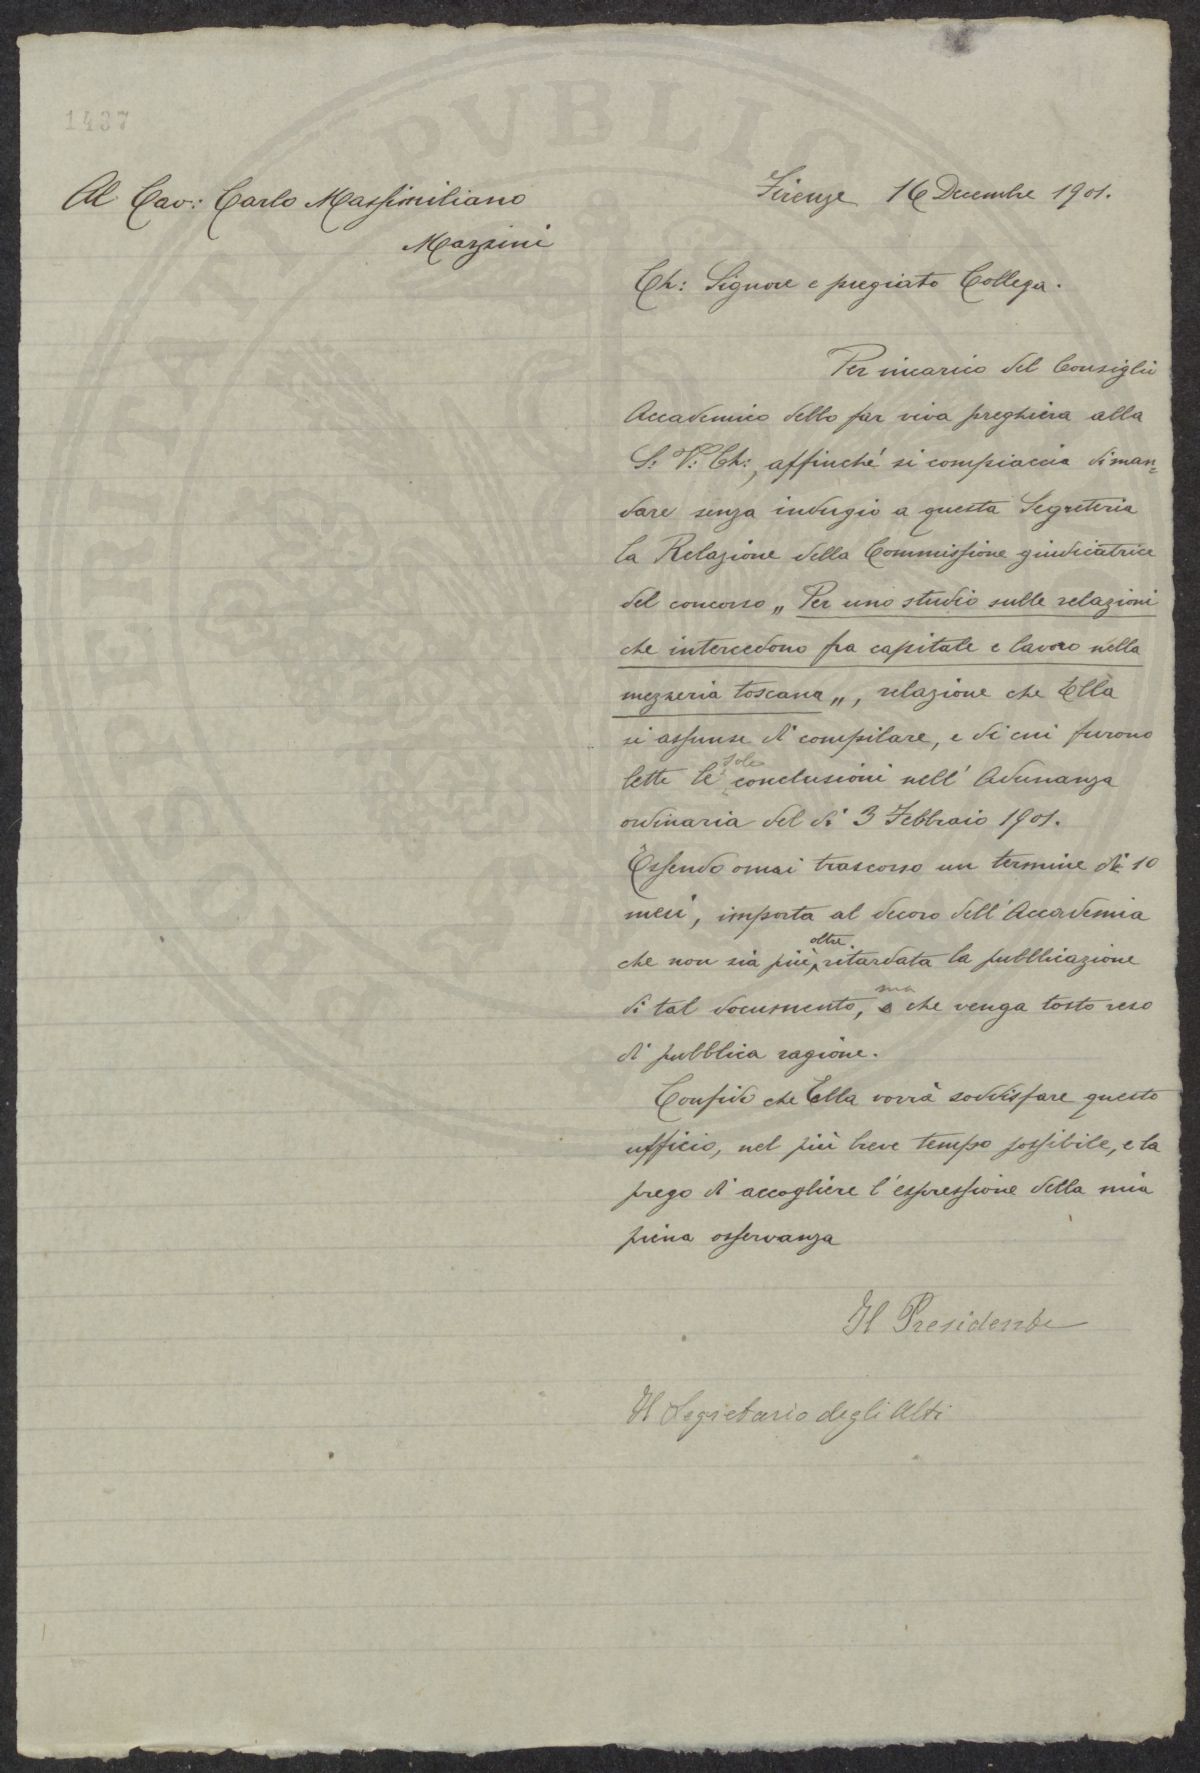 1437
Al Cav: Carlo Massimiliano
Mazzini
Firenze 16 Decembre 1901.
Ch: Signore e pregiato Collega.
Per incarico del Consiglio
Accademico debbo far viva preghiera alla
S: V: Ch:, affinché si compiaccia di man=
dare senza indugio a questa Segreteria
la Relazione della Commissione giudicatrice
del concorso „ Per uno studio sulle relazioni
che intercedono fra capitale e lavoro nella
mezzeria toscana „, relazione che Ella
si assunse di compilare, e di cui furono
lette le sole conclusioni nell' Adunanza
ordinaria del dì 3 Febbraio 1901.
Essendo omai trascorso un termine di 10
mesi, importa al decoro dell' Accademia
che non sia più oltre ritardata la pubblicazione
di tal documento, ma che venga tosto reso
di pubblica ragione.
Confido che Ella vorrà soddisfare questo
ufficio, nel più breve tempo possibile, e la
prego di accogliere l'espressione della mia
piena osservanza
Il Presidente
Il Segretario degli Atti
PVBLIC